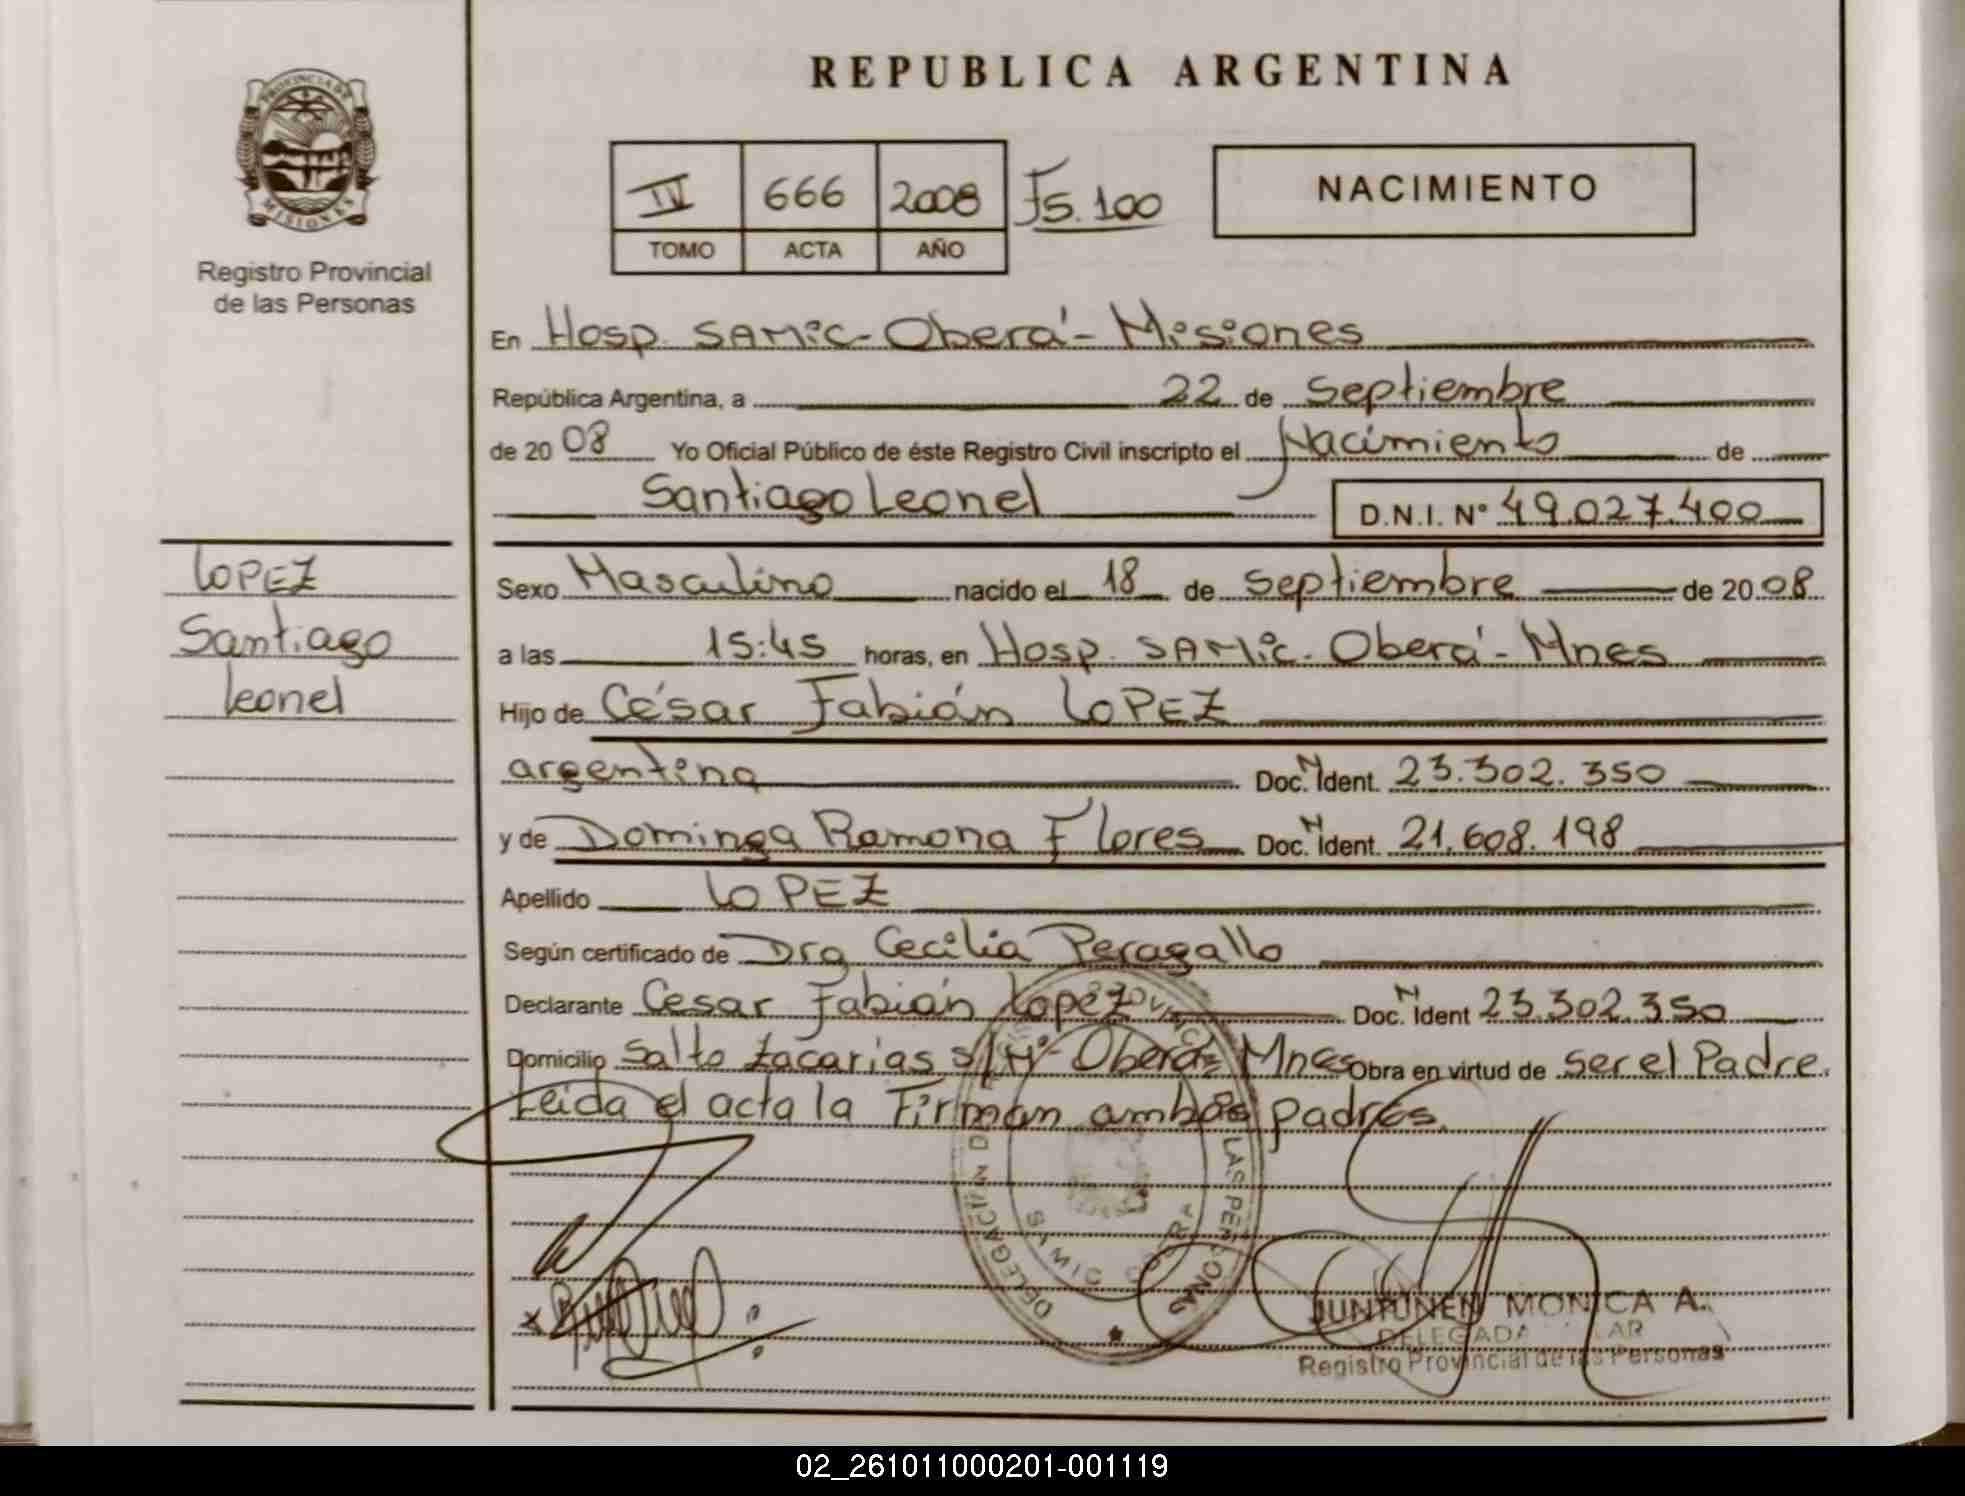 REPUBLICA ARGENTINA
PROVINCIA DE
MISIONES
Registro Provincial
de las Personas
IV 666 2008 Fs. 100
TOMO ACTA AÑO
NACIMIENTO
En Hosp. SAMiC - Oberá - Misiones
República Argentina, a 22 de Septiembre
de 20 08 Yo Oficial Público de éste Registro Civil inscripto el Nacimiento de
Santiago Leonel D.N.I. N° 49.027.400
LOPEZ
Santiago
Leonel
Sexo Masculino nacido el 18 de Septiembre de 20 08
a las 15:45 horas, en Hosp. SAMiC. Oberá - Mnes
Hijo de César Fabián LOPEZ
argentina Doc. N Ident. 23.302.350
y de Dominga Ramona Flores Doc. N Ident. 21.608.198
Apellido LOPEZ
Según certificado de Dra Cecilia Peragallo
Declarante Cesar Fabián Lopez Doc. N Ident 23.302.350
Domicilio Salto Zacarias s/Nº Oberá - Mnes Obra en virtud de ser el Padre.
Leida el acta la Firman ambos padres.
DELEGACIÓN LAS PERSONAS
JUNTUNEN MONICA A.
DELEGADA
Registro Provincial de las Personas
02_261011000201-001119